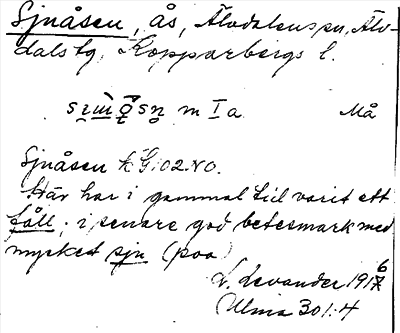 Sjnåsen, ås, Älvdalens sn, Älv-
dals tg, Kopparbergs l.
m I a Må
Sjnåsen kG: 02.NO.
Här har i gammal tid varit ett
fåll; i senare god betesmark med
mycket sjn (poa)
L. Levander 1916
Ulma 301:4